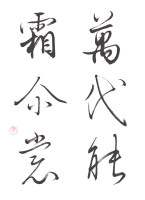 萬代能
霜尒裳